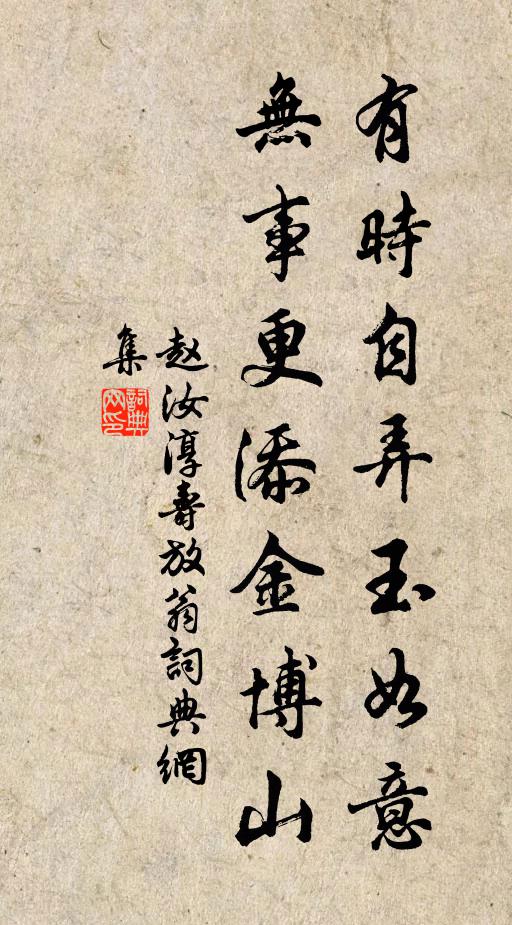 有時自弄玉如意
無事更添金博山
赵汝淳壽放翁詞典網
集
詞典網印